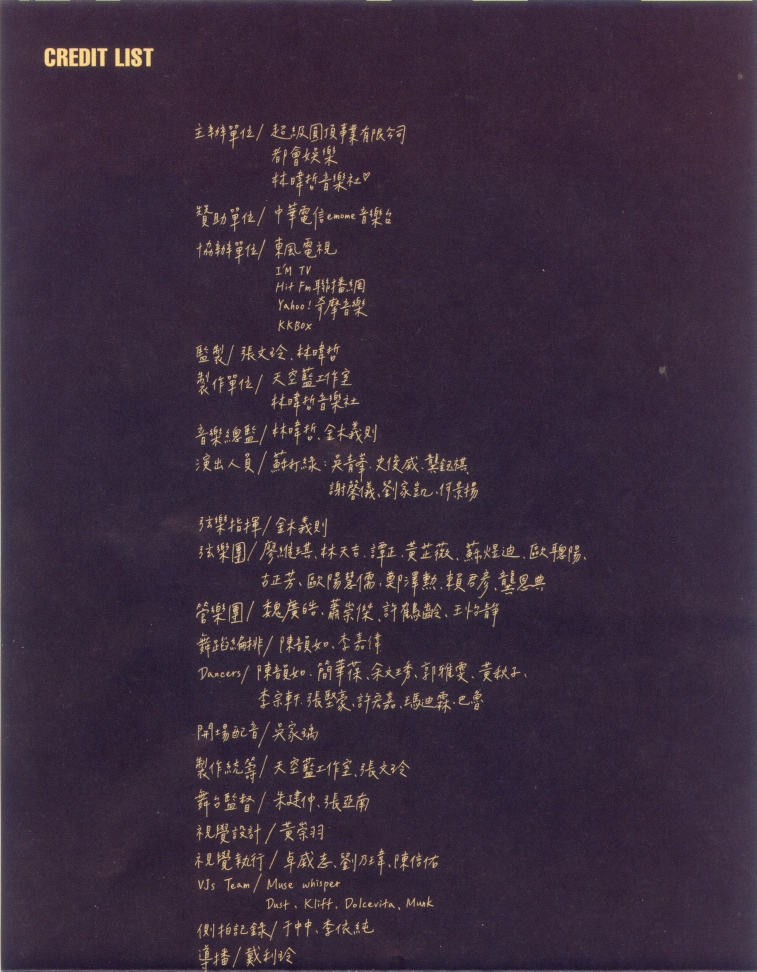 CREDIT LIST
主辦單位/ 超級圓頂事業有限公司
都會娛樂
林暐哲音樂社♡
贊助單位/ 中華電信emome音樂台
協辦單位/ 東風電視
I'M TV
Hit Fm聯播網
Yahoo!奇摩音樂
KKBOX
監製/ 張文玲、林暐哲
製作單位/ 天空藍工作室
林暐哲音樂社
音樂總監/ 林暐哲、金木義則
演出人員/ 蘇打綠:吳青峯、史俊威、龔鈺祺、
謝馨儀、劉家凱、何景揚
弦樂指揮/ 金木義則
弦樂團/ 廖維琪、林天吉、譚正、黃芷薇、蘇煜迪、歐聰陽、
古正芳、歐陽慧儒、鄭澤勲、賴君彥、龔恩典
管樂團/ 魏廣皓、蕭崇傑、許鶴齡、王怡靜
舞蹈編排/ 陳韻如、李嘉偉
Dancers/ 陳韻如、簡華葆、余文琇、郭雅雯、黃秋子、
李宗軒、張堅豪、許宏嘉、瑪迪霖、巴魯
開場配音/ 吳家瑀
製作統籌/ 天空藍工作室、張文玲
舞台監督/ 朱建仲、張亞南
視覺設計/ 黃榮羽
視覺執行/ 卓威志、劉乃瑋、陳信佑
VJs Team/ Muse whisper
Dust、Kliff、Dolcevita、Musk
側拍記錄/ 于中中、李依純
導播/ 戴利玲